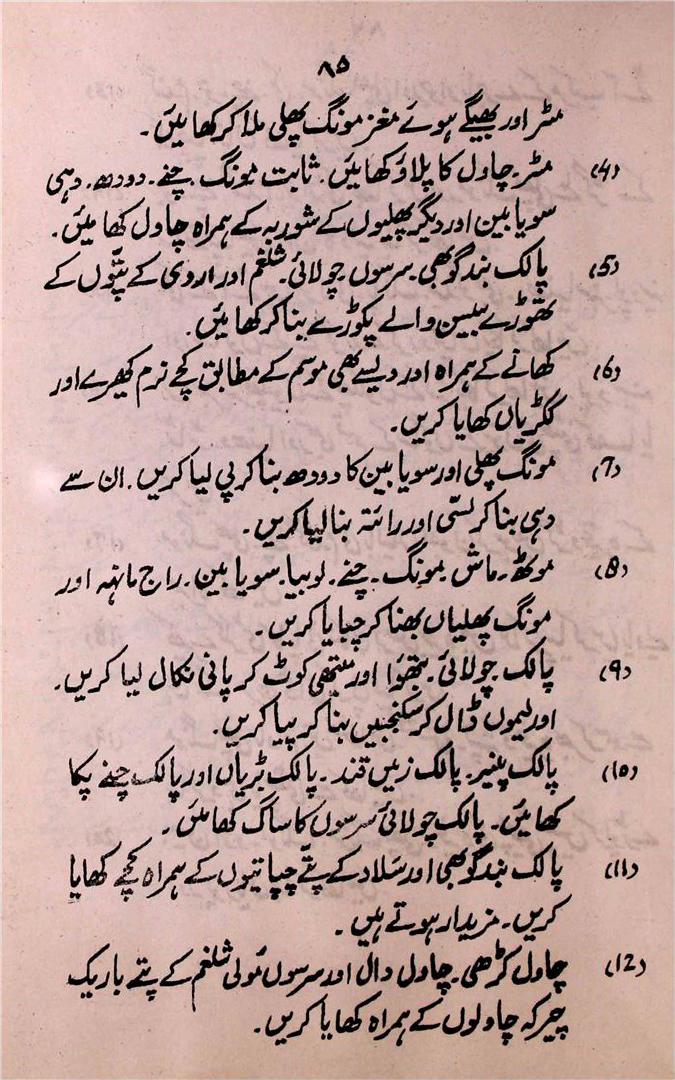 ۸۵
مٹر اور بھیگے ہوئے مغز مونگ پھلی ملا کر کھائیں۔
(4) مٹر۔ چاول کا پلاؤ کھائیں۔ ثابت مونگ۔ چنے۔ دودھ۔ دہی
سویا بین اور دیگر پھلیوں کے شوربہ کے ہمراہ چاول کھائیں۔
(5) پالک بند گوبھی۔ سرسوں۔ چولائی۔ شلغم اور اروی کے پتّوں کے
تھوڑے بیسن والے پکوڑے بنا کر کھائیں۔
(6) کھانے کے ہمراہ اور ویسے بھی موسم کے مطابق کچے نرم کھیرے اور
ککڑیاں کھایا کریں۔
(7) مونگ پھلی اور سویا بین کا دودھ بنا کر پی لیا کریں۔ ان سے
دہی بنا کر لسّی اور رائتہ بنا لیا کریں۔
(8) موٹھ۔ ماش۔ مونگ۔ چنے۔ لوبیا۔ سویا بین۔ راج مانہہ اور
مونگ پھلیاں بھنا کر چبایا کریں۔
(9) پالک۔ چولائی۔ بتھوا اور میتھی کوٹ کر پانی نکال لیا کریں۔
اور لیموں ڈال کر سکنجبیں بنا کر پیا کریں۔
(10) پالک پنیر۔ پالک زمیں قند۔ پالک بڑیاں اور پالک چنے پکا
کھائیں۔ پالک چولائی سرسوں کا ساگ کھائیں۔
(11) پالک بند گوبھی اور سلاد کے پتّے چپاتیوں کے ہمراہ کچّے کھایا
کریں۔ مزیدار ہوتے ہیں۔
(12) چاول کڑھی۔ چاول دال اور سرسوں مُولی شلغم کے پتے باریک
چیر کر چاولوں کے ہمراہ کھایا کریں۔